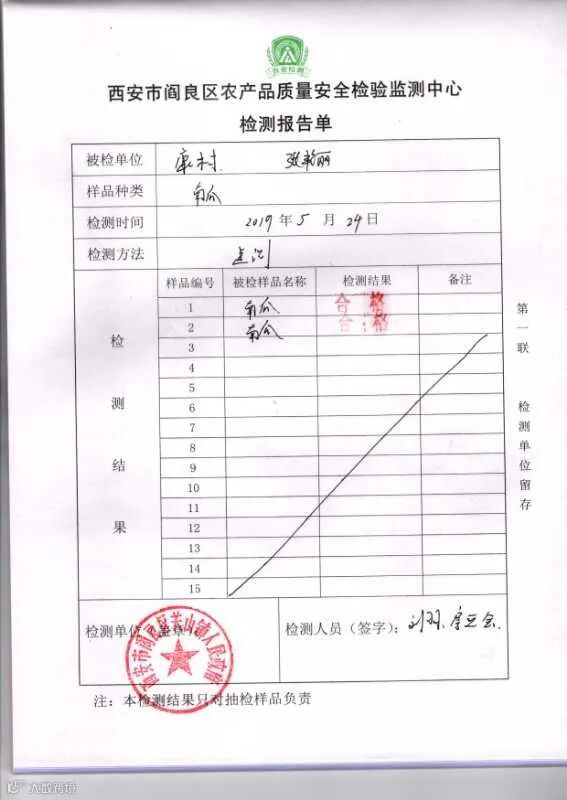 农业检测
西安市阎良区农产品质量安全检验监测中心
检测报告单
被检单位 康村 张艳丽
样品种类 南瓜
检测时间 2019年5月24日
检测方法 速测
样品编号 被检样品名称 检测结果 备注
1 南瓜 合格
2 南瓜 合格
3
4
5
6
7
8
9
10
11
12
13
14
15
检测结果
第一联 检测单位留存
检测单位(盖章)
西安市阎良区关山镇人民政府
检测人员(签字):
注:本检测结果只对抽检样品负责
大数跨境